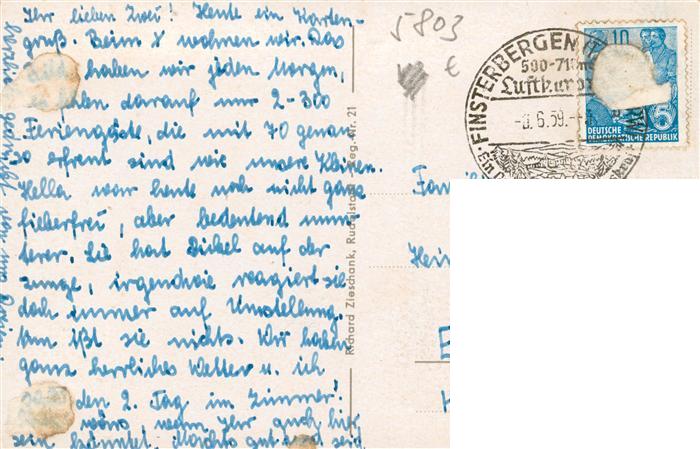 Ihr lieben Zwei! Heute ein Karten-
gruß. Beim X wohnen wir. Das
haben wir jeden Morgen,
darauf nur 2-300
Feriengäste, die mit 70 genau
so erfreut sind wie unsre Kleinen.
Hella war heute noch nicht ganz
fieberfrei, aber bedeutend mun-
terer. Sie hat Pickel auf der
Zunge, irgendwie reagiert sie
doch immer auf Umstellung.
ißt sie nichts. Wir haben
ganz herrliches Wetter u. ich
den 2. Tag im Zimmer!
wärs wenn Ihr auch hier
sein könntet. Machts gut und seid
herzlich gegrüßt von
Richard Zieschank, Rudolstadt Reg.-Nr. 21
5803
€
FINSTERBERGEN (T
500-71
Luftkur
-3.6.59.-
Ein
10
DEUTSCHE
DEMOKRATISCHE REPUBLIK
5
Fam
Hein